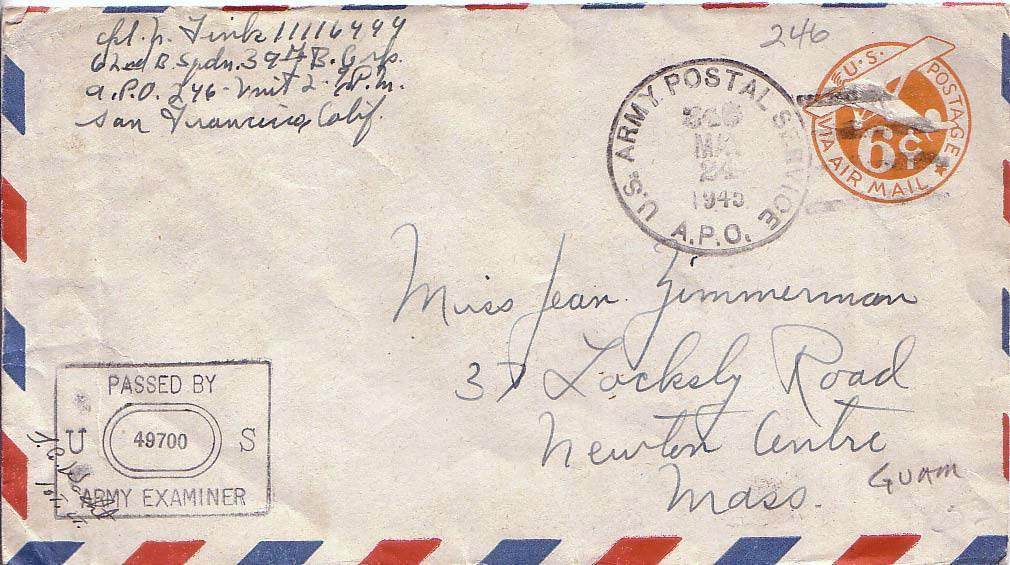 Cpl. N. Fink 11116494
62nd B. Sqdn. 39th B. Grp.
A.P.O. 246 - Unit 2 - P.M.
San Francisco, Calif.
246
U.S. POSTAGE
6¢
VIA AIR MAIL
U.S. ARMY POSTAL SERVICE
MAR
24
1945
A.P.O.
Miss Jean Zimmerman
37 Locksly Road
Newton Centre
Mass.
GUAM
PASSED BY
U 49700 S
ARMY EXAMINER